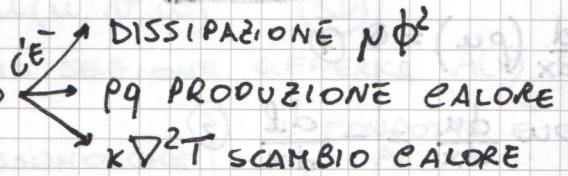 DISSIPAZIONE μϕ²
C'E
ρq PRODUZIONE CALORE
K∇²T SCAMBIO CALORE